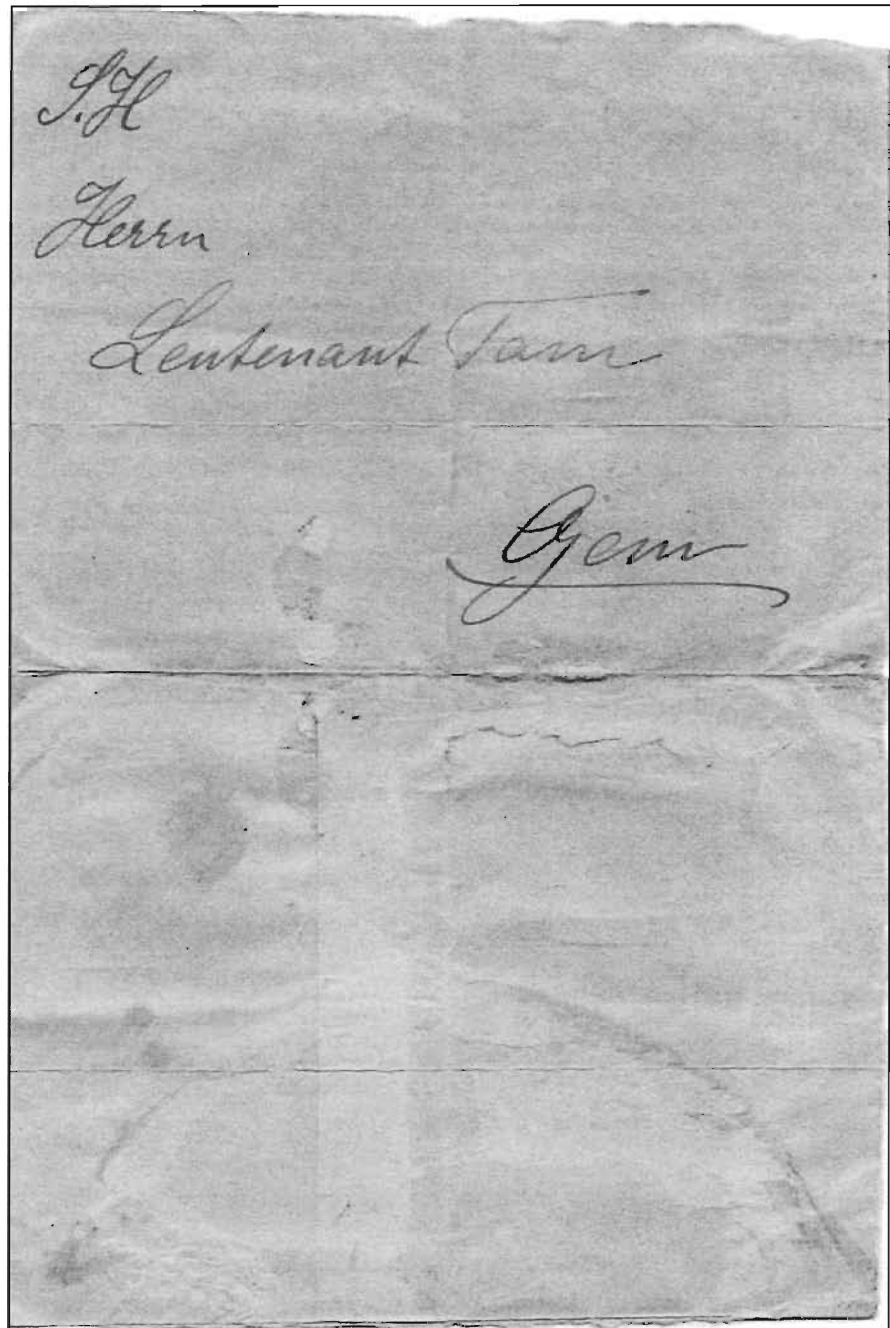 S.H
Herrn
Leutenant Tam
Gjem